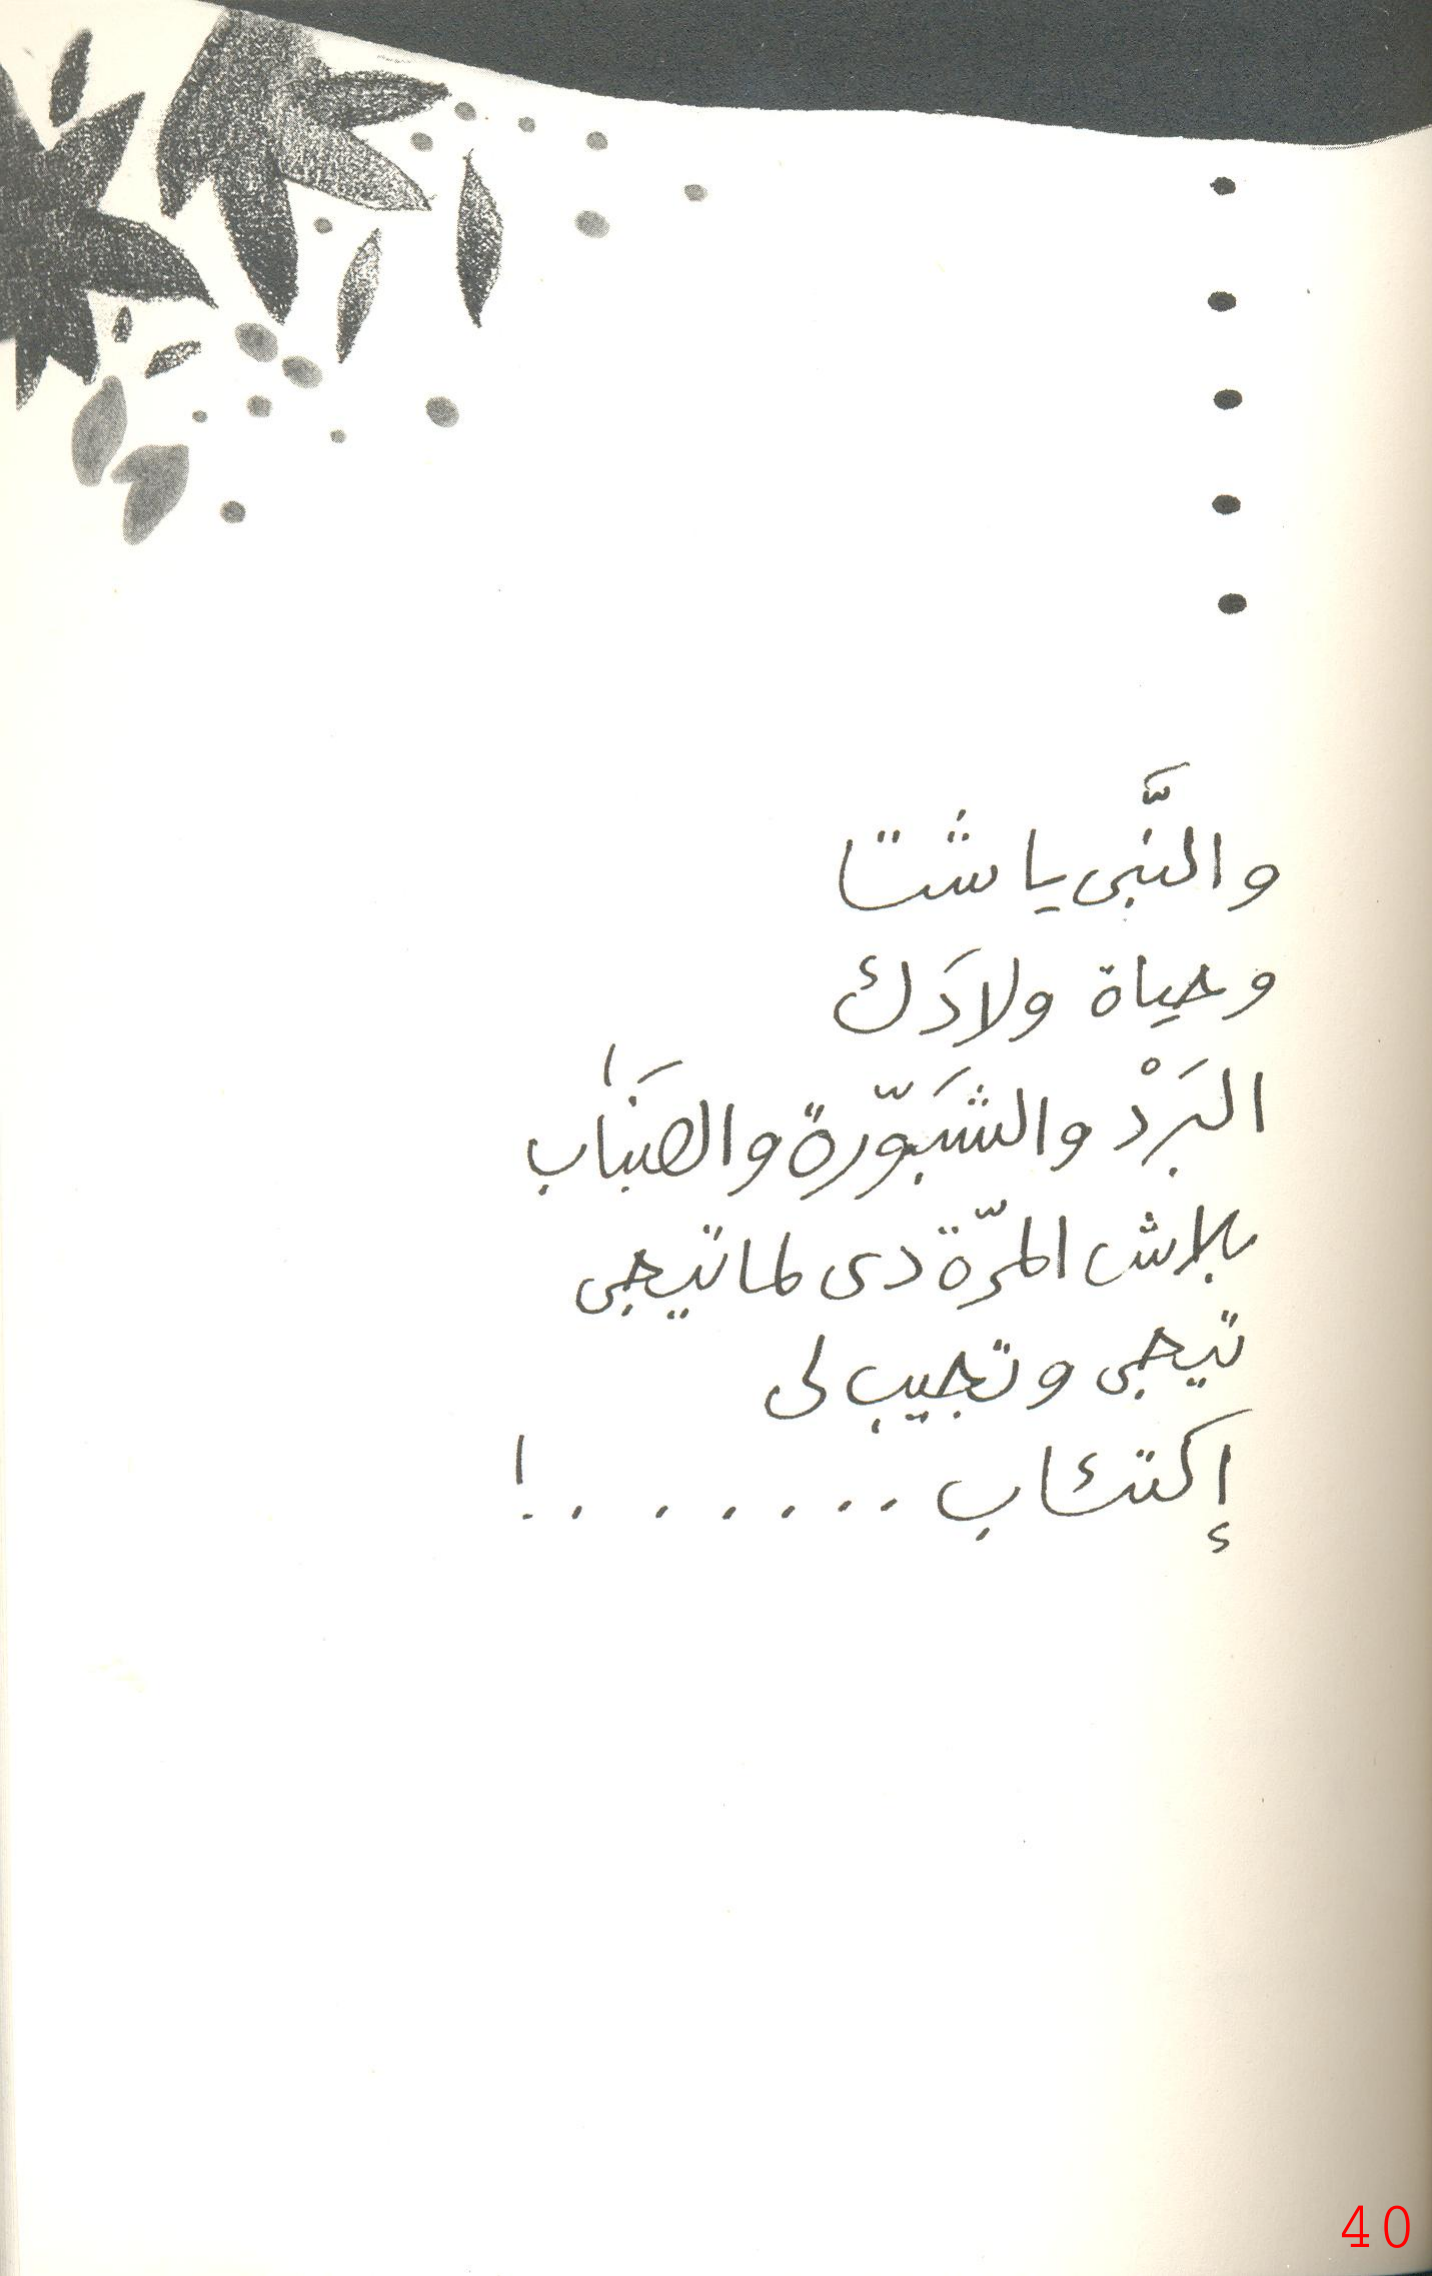 والنَّبى يا شتا
وحياة ولادَك
البَرْد والشَبّورة والضَباب
بلاش المرّة دى لما تيجى
تيجى وتجيب لى
إكتئاب .......!
40